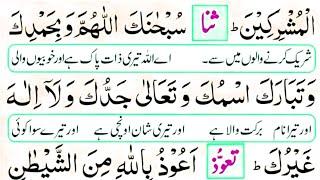 الْمُشْرِكِيْنَ ط ثنا سُبْحٰنَكَ اللّٰهُمَّ وَبِحَمْدِكَ
شریک کرنے والوں میں سے۔ اے اللہ تیری ذات پاک ہے اور خوبیوں والی
وَتَبَارَكَ اسْمُكَ وَتَعَالٰى جَدُّكَ وَلَآ اِلٰهَ
اور تیرا نام برکت والا ہے اور تیری شان اونچی ہے اور تیرے سوا کوئی
غَيْرُكَ ط تعوّذ اَعُوْذُ بِاللّٰهِ مِنَ الشَّيْطٰنِ